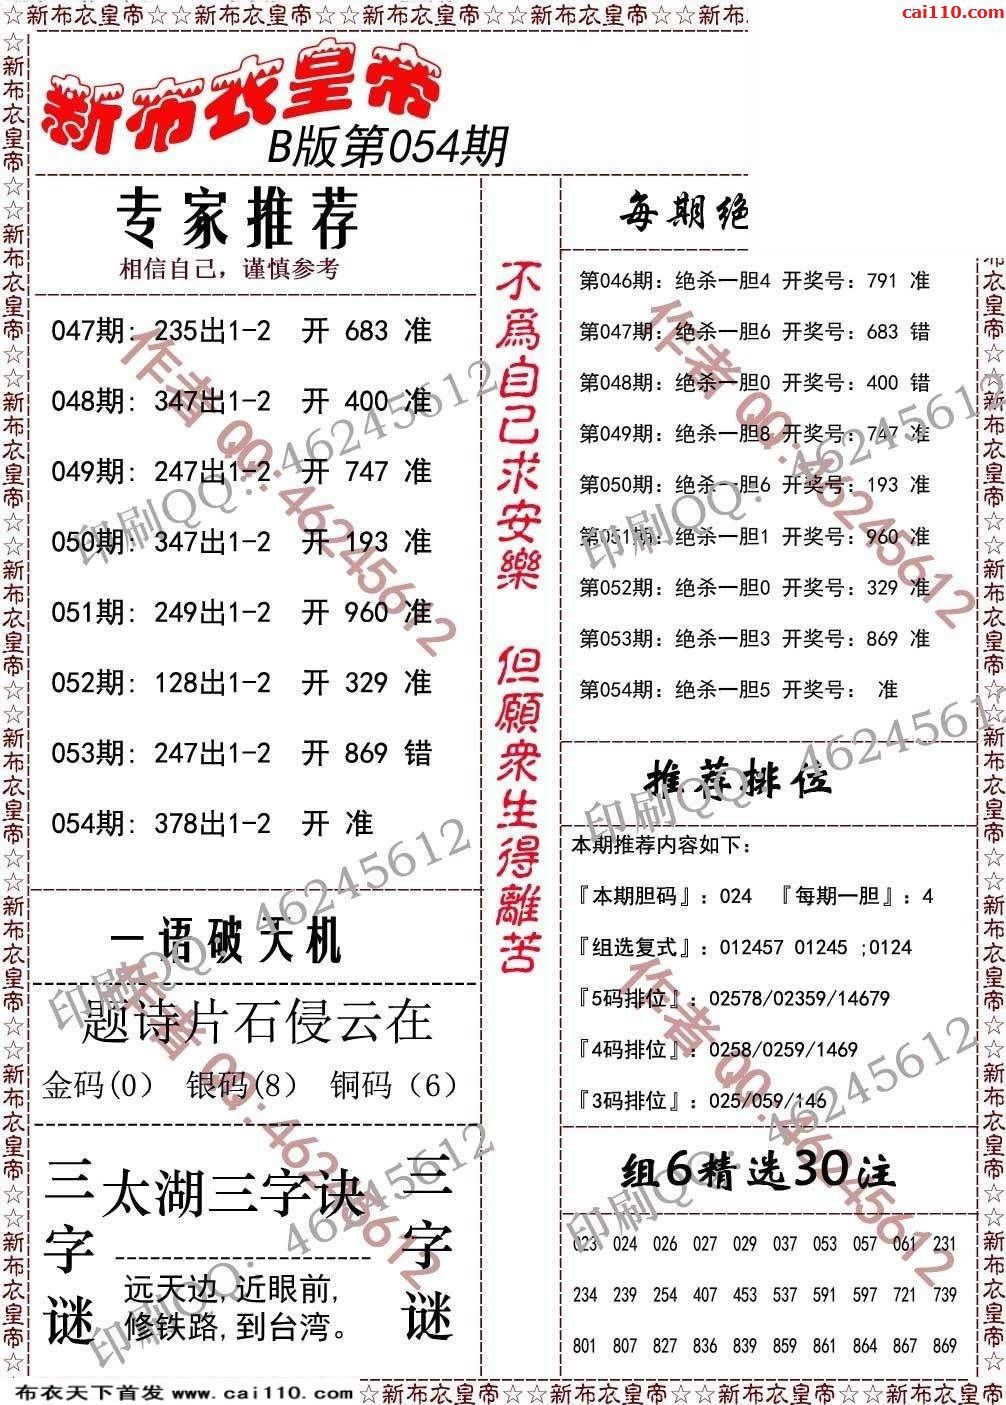 ☆新布衣皇帝☆☆新布衣皇帝☆☆新布衣皇帝☆☆新布衣皇帝☆☆新布
cai110.com
新布衣皇帝
B版第054期
专家推荐
相信自己，谨慎参考
047期: 235出1-2 开 683 准
048期: 347出1-2 开 400 准
049期: 247出1-2 开 747 准
050期: 347出1-2 开 193 准
051期: 249出1-2 开 960 准
052期: 128出1-2 开 329 准
053期: 247出1-2 开 869 错
054期: 378出1-2 开 准
一语破天机
题诗片石侵云在
金码(0) 银码(8) 铜码（6）
三字谜
太湖三字诀
远天边,近眼前,
修铁路,到台湾。
三字谜
不爲自己求安樂 但願衆生得離苦
每期绝
第046期: 绝杀一胆4 开奖号: 791 准
第047期: 绝杀一胆6 开奖号: 683 错
第048期: 绝杀一胆0 开奖号: 400 错
第049期: 绝杀一胆8 开奖号: 747 准
第050期: 绝杀一胆6 开奖号: 193 准
第051期: 绝杀一胆1 开奖号: 960 准
第052期: 绝杀一胆0 开奖号: 329 准
第053期: 绝杀一胆3 开奖号: 869 准
第054期: 绝杀一胆5 开奖号: 准
推荐排位
本期推荐内容如下:
『本期胆码』: 024 『每期一胆』: 4
『组选复式』: 012457 01245 ;0124
『5码排位』: 02578/02359/14679
『4码排位』: 0258/0259/1469
『3码排位』: 025/059/146
组6精选30注
023 024 026 027 029 037 053 057 061 231
234 239 254 407 453 537 591 597 721 739
801 807 827 836 839 859 861 864 867 869
作者QQ:46245612
印刷QQ:46245612
作者QQ:46245612
印刷QQ:46245612
印刷QQ:46245612
印刷QQ:46245612
作者QQ:46245612
作者QQ:46245612
印刷QQ:46245612
印刷QQ:46245612
☆新布衣皇帝☆☆新布衣皇帝☆☆新布衣皇帝☆☆新布衣皇帝☆☆新布衣皇帝☆☆新布衣皇帝☆☆新布衣皇帝☆☆新布衣皇帝☆
衣皇帝☆☆新布衣皇帝☆☆新布衣皇帝☆☆新布衣皇帝☆☆新布衣皇帝☆☆新布衣皇帝☆☆新布衣皇帝☆
布衣天下首发 www.cai110.com
☆新布衣皇帝☆☆新布衣皇帝☆☆新布衣皇帝☆☆新布衣皇帝☆